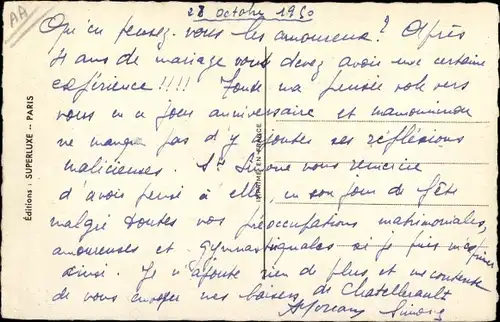 AA
28 octobre 1950
Qu'en pensez-vous les amoureux? Après
4 ans de mariage vous devez avoir une certaine
expérience!!!! Toute ma pensée vole vers
vous en ce jour anniversaire et mamouninou
ne manque pas d'y ajouter ses réflexions
malicieuses Ste Simone vous remercie
d'avoir pensé à elle, en son jour de fête
malgré toutes vos préoccupations matrimoniales,
amoureuses et gymnastiquales si je puis m'exprimer
ainsi. Je n'ajoute rien de plus, et me contente
de vous envoyer nos baisers de Chatellerault
Simone
Éditions : SUPERLUXE -- PARIS
IMPRIMÉ EN FRANCE